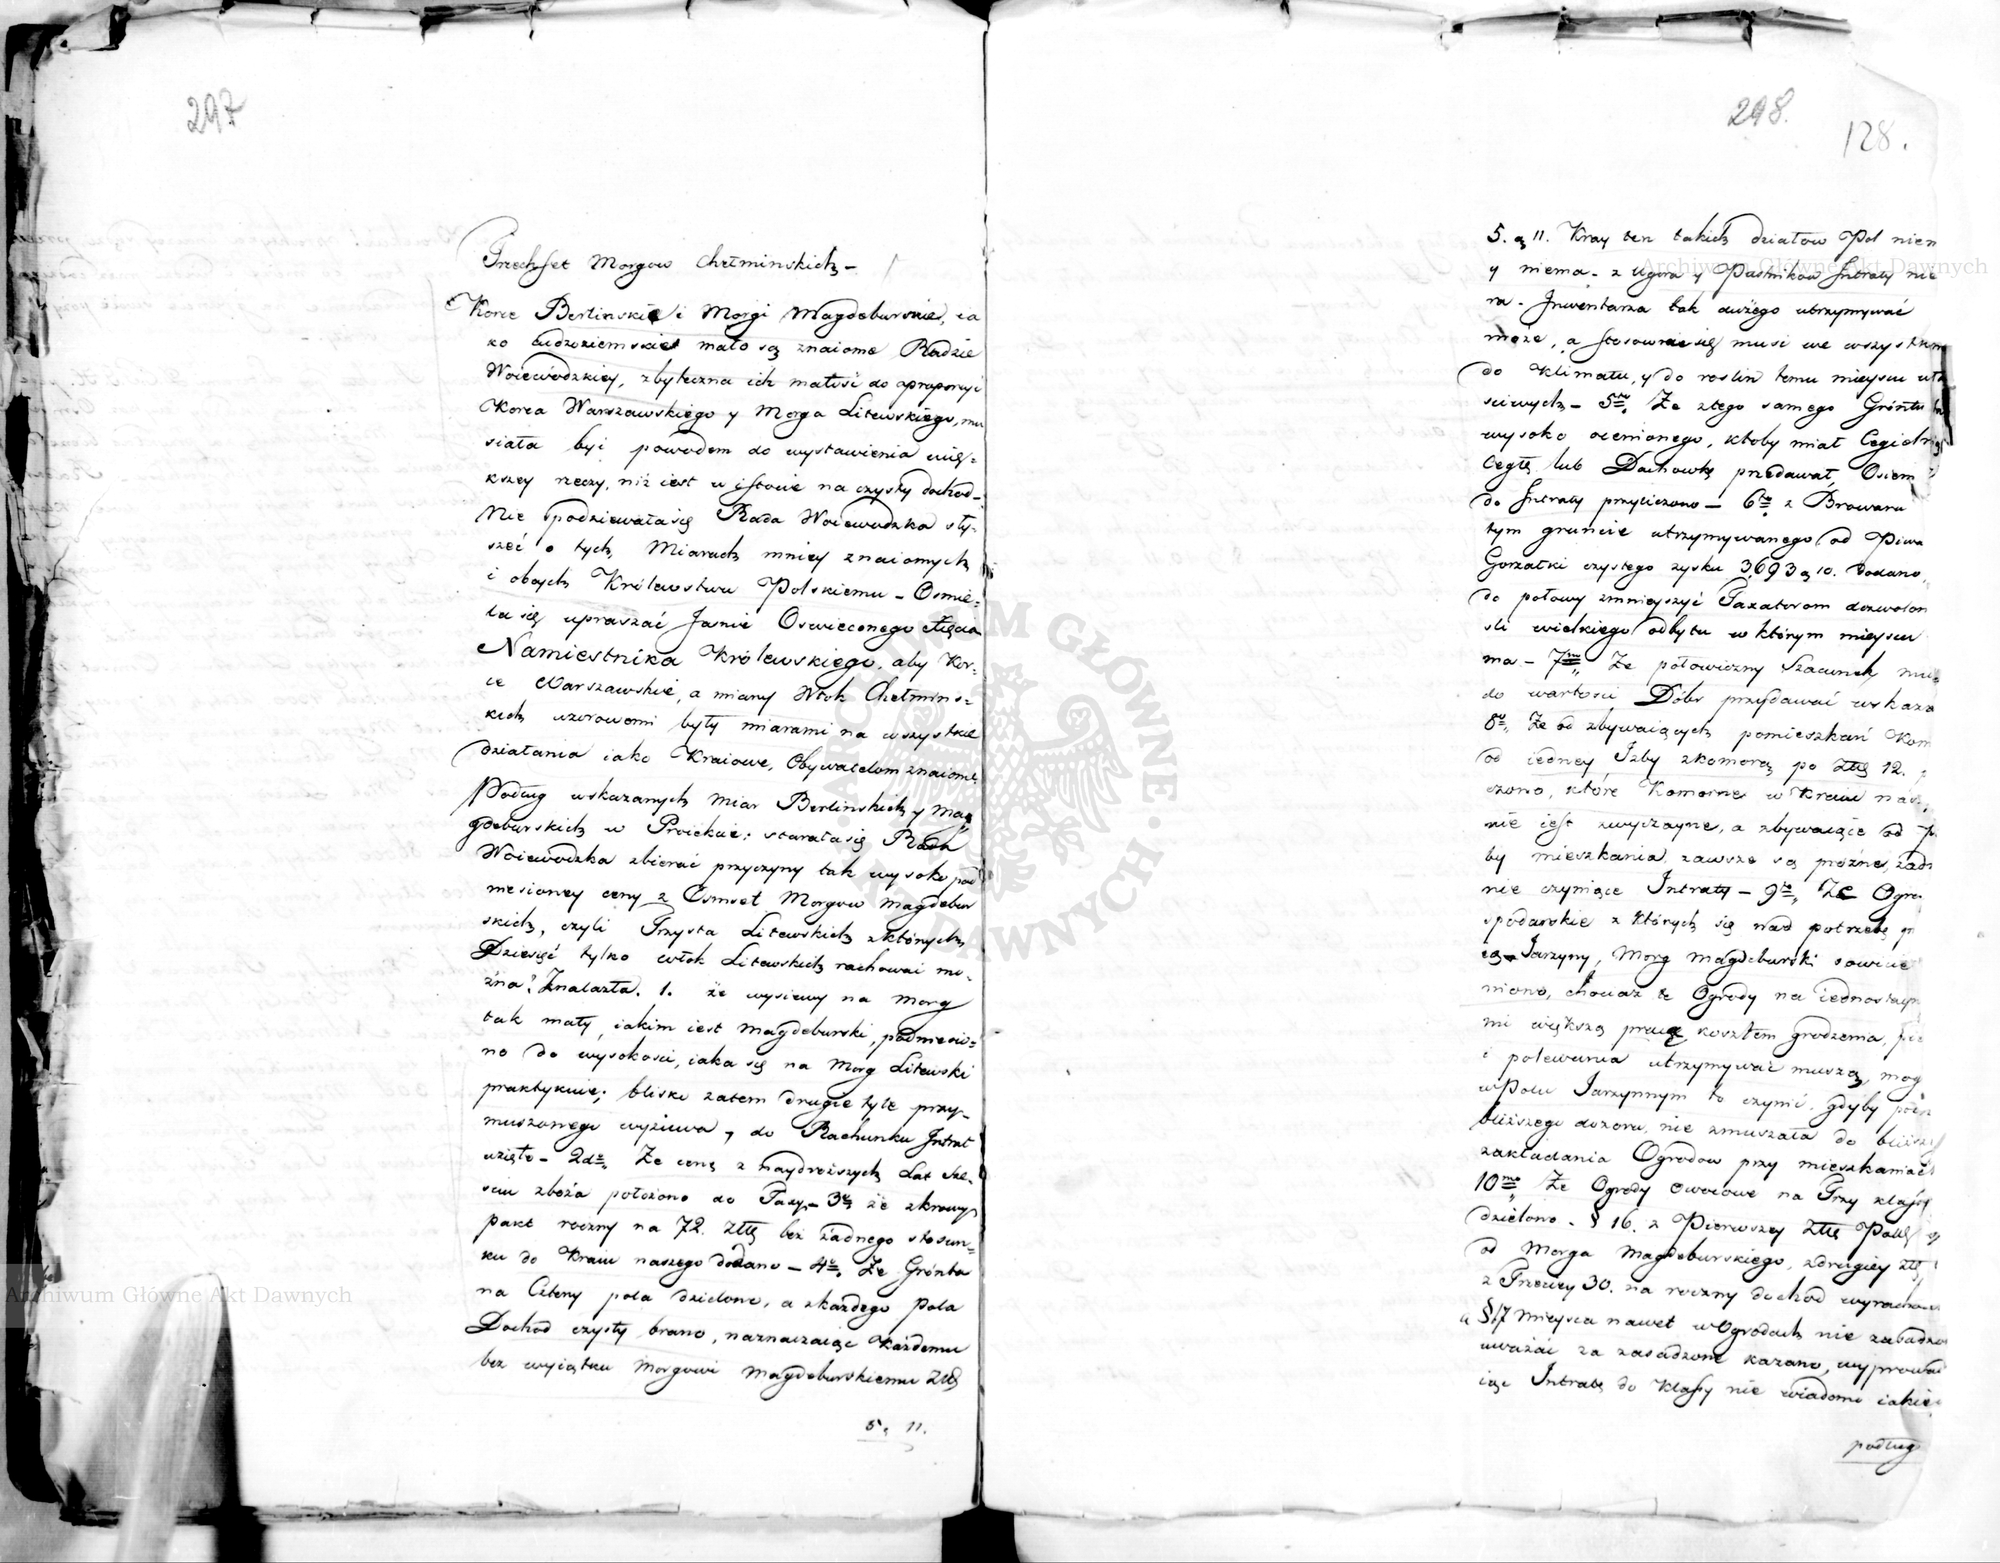 297
Trzechset Morgow Chełminskich –
Korce Berlinskie i Morgi Magdeburskie, ia
ko cudzoziemskie mało są znaiome Radzie
Woiewódzkiey, zbyteczna ich małość do proporcyi
Korca Warszawskiego y Morga Litewskiego, mu
siała być powodem do wystawienia więk=
kszey rzeczy, niż iest w istocie na czysty dochod –
Nie spodziewała się Rada Woiewodzka sły=
szeć o tych Miarach mniey znaiomych
i obcych Królewstwu Polskiemu – Osmie=
la się upraszać Jasnie Oswieconego Xięcia
Namiestnika Królewskiego, aby Kor=
ce Warszawskie, a miary Włok Chełmins=
kich wzorowemi były miarami na wszystkie
działania iako Kraiowe, Obywatelom znaiome
Podług wskazanych miar Berlinskich y Mag
gdeburskich w Proiekcie; starała się Rada
Woiewodzka zbierać przyczyny tak wysoko pod
niesioney ceny z Osmset Morgow Magdebur
skich, czyli Trzysta Litewskich z których
Dziesięć tylko włok Litewskich rachować mo=
żna? Znalazła. 1. że wysiewy na Morg
tak mały, iakim iest Magdeburski, podniesio=
no do wysokosci, iaka się na Morg Litewski
praktykuie; blisko zatem drugie tyle przy=
muszonego wysiewu, do Rachunku Intrat
wzięto – 2do Że cenę z naydroższych Lat Sze=
sciu zboża położono do Taxy – 3o że z krowy
pakt roczny na 72. Złł bez żadnego stosun=
ku do Kraiu naszego dodano – 4o Że Grónta
na Cztery pola dzielone, a z każdego pola
Dochód czysty brano, naznaczaiąc każdemu
bez wyiątku Morgowi Magdeburskiemu Złł
5, 11.
298.
128.
5. g 11. Kray ten takich działow Pol niem
y niema – z Ugoru y Pastnikow Intraty nie
ra – Inwentarza tak dużego utrzymywać
może, a stosować się musi we wszystkim
do Klimatu, y do roslin temu mieyscu wła
sciwych – 5to Że z tego samego Gróntu
wysoko ocenionego, ktoby miał Cegielnią
Cegłę lub Dachowkę przedawał, Osiem
do Intraty przyliczono – 6to z Browaru
tym gruncie utrzymywanego od Piwa
Gorzałki czystego zysku 3,693 g 10. dodano,
do połowy zmnieyszyć Taxatorom dozwolon
sli wielkiego odbytu w którym mieyscu
ma – 7mo Że połowiczny Szacunek
do wartosci Dóbr przydawać wskaza
8o Że od zbywaiących pomieszkań Kom
od iedney Izby z komorą po Złł 12.
czono, które Komorne w Kraiu
nie iest zwyczayne, a zbywaiące od
by mieszkania, zawsze są prózne, żad
nie czyniące Intraty – 9te Że Ogro
spodarskie z których się nad potrzebę
ią Jarzyny, Morg Magdeburski sowicie
niono, chociaż te Ogrody na iednostayn
mi większą pracą kosztem grodzenia,
i polewania utrzymywać muszą, mog
w Polu Jarzynnym to czynić, gdyby
bliższego dozoru, nie zmuszała do bliższ
zakładania Ogrodow przy mieszkaniach
10mo Że Ogrody owocowe na Trzy klassy
dzielono – § 16. z Pierwszey Złł Polł
od Morga Magdeburskiego, z drugiey Złł
z Trzeciey 30. na roczny dochod wyracho
a § 17 Mieysca nawet w Ogrodach nie zasadzo
uważać za zasadzone kazano, wyprowa
iąc Intratę do Klassy nie wiadomo iakiey
podług